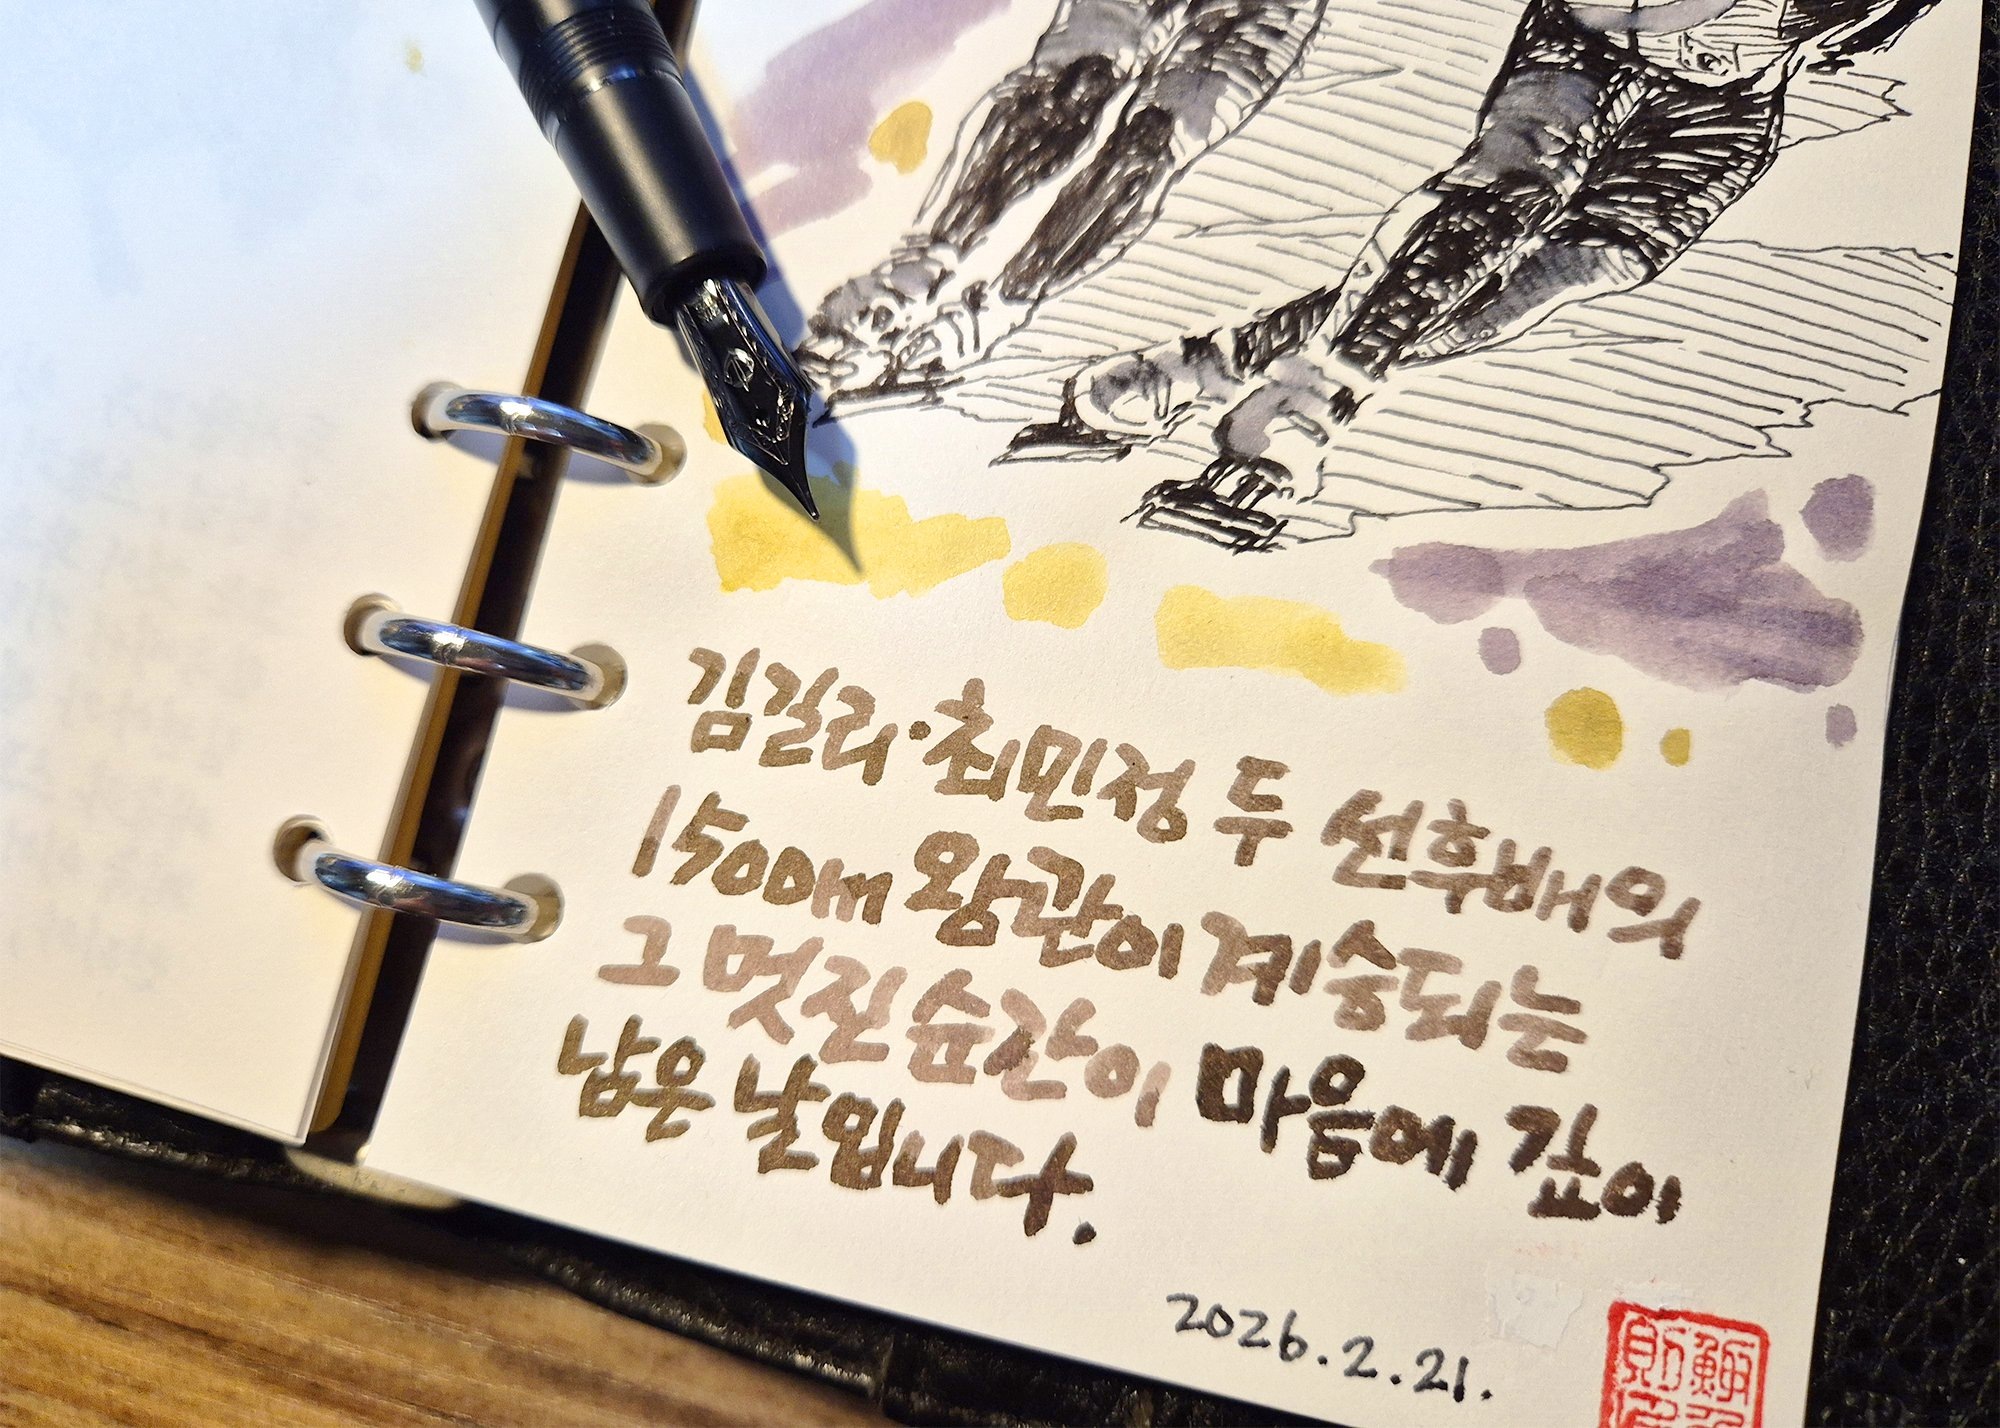 김길리·최민정 두 선후배의
1500m 왕관이 계승되는
그 멋진 순간이 마음에 깊이
남은 날입니다.
2026.2.21.